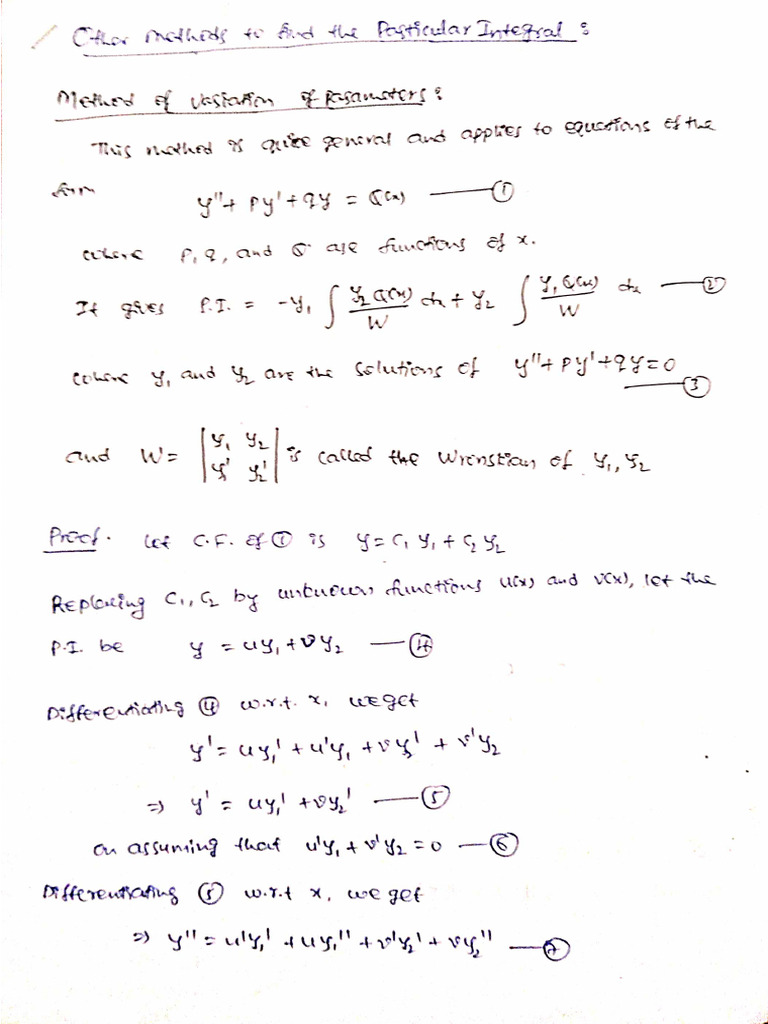 Other methods to find the Particular Integral :
Method of variation of parameters :
This method is quite general and applies to equations of the
form y'' + py' + qy = Q(x) —— ①
where p, q, and Q are functions of x.
It gives P.I. = -y₁ ∫ y₂Q(x)/W dx + y₂ ∫ y₁Q(x)/W dx —— ②
where y₁ and y₂ are the solutions of y'' + py' + qy = 0
—— ③
and W = |y₁ y₂; y₁' y₂'| is called the Wronskian of y₁, y₂
Proof. Let C.F. of ① is y = c₁ y₁ + c₂ y₂
Replacing c₁, c₂ by unknown functions u(x) and v(x), let the
P.I. be y = uy₁ + vy₂ —— ④
Differentiating ④ w.r.t. x, we get
y' = uy₁' + u'y₁ + vy₂' + v'y₂
⇒ y' = uy₁' + vy₂' —— ⑤
on assuming that u'y₁ + v'y₂ = 0 —— ⑥
Differentiating ⑤ w.r.t x, we get
⇒ y'' = u'y₁' + uy₁'' + v'y₂' + vy₂'' —— ⑦